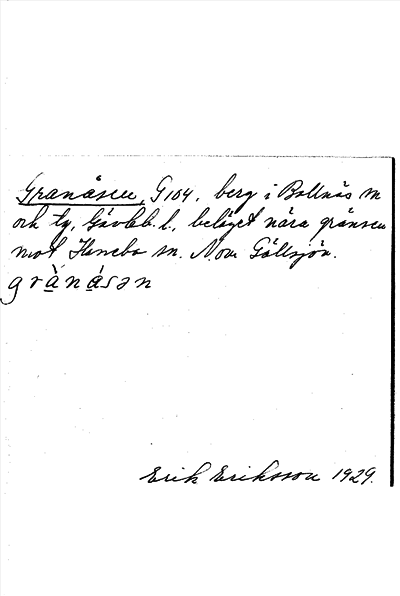 Granåsen, G104, berg i Bollnäs sn
och tg, Gävleb. l., beläget nära gränsen
mot Hanebo sn. N. om Göllsjön.
gràn&#x301;åsən
Erik Eriksson 1929.